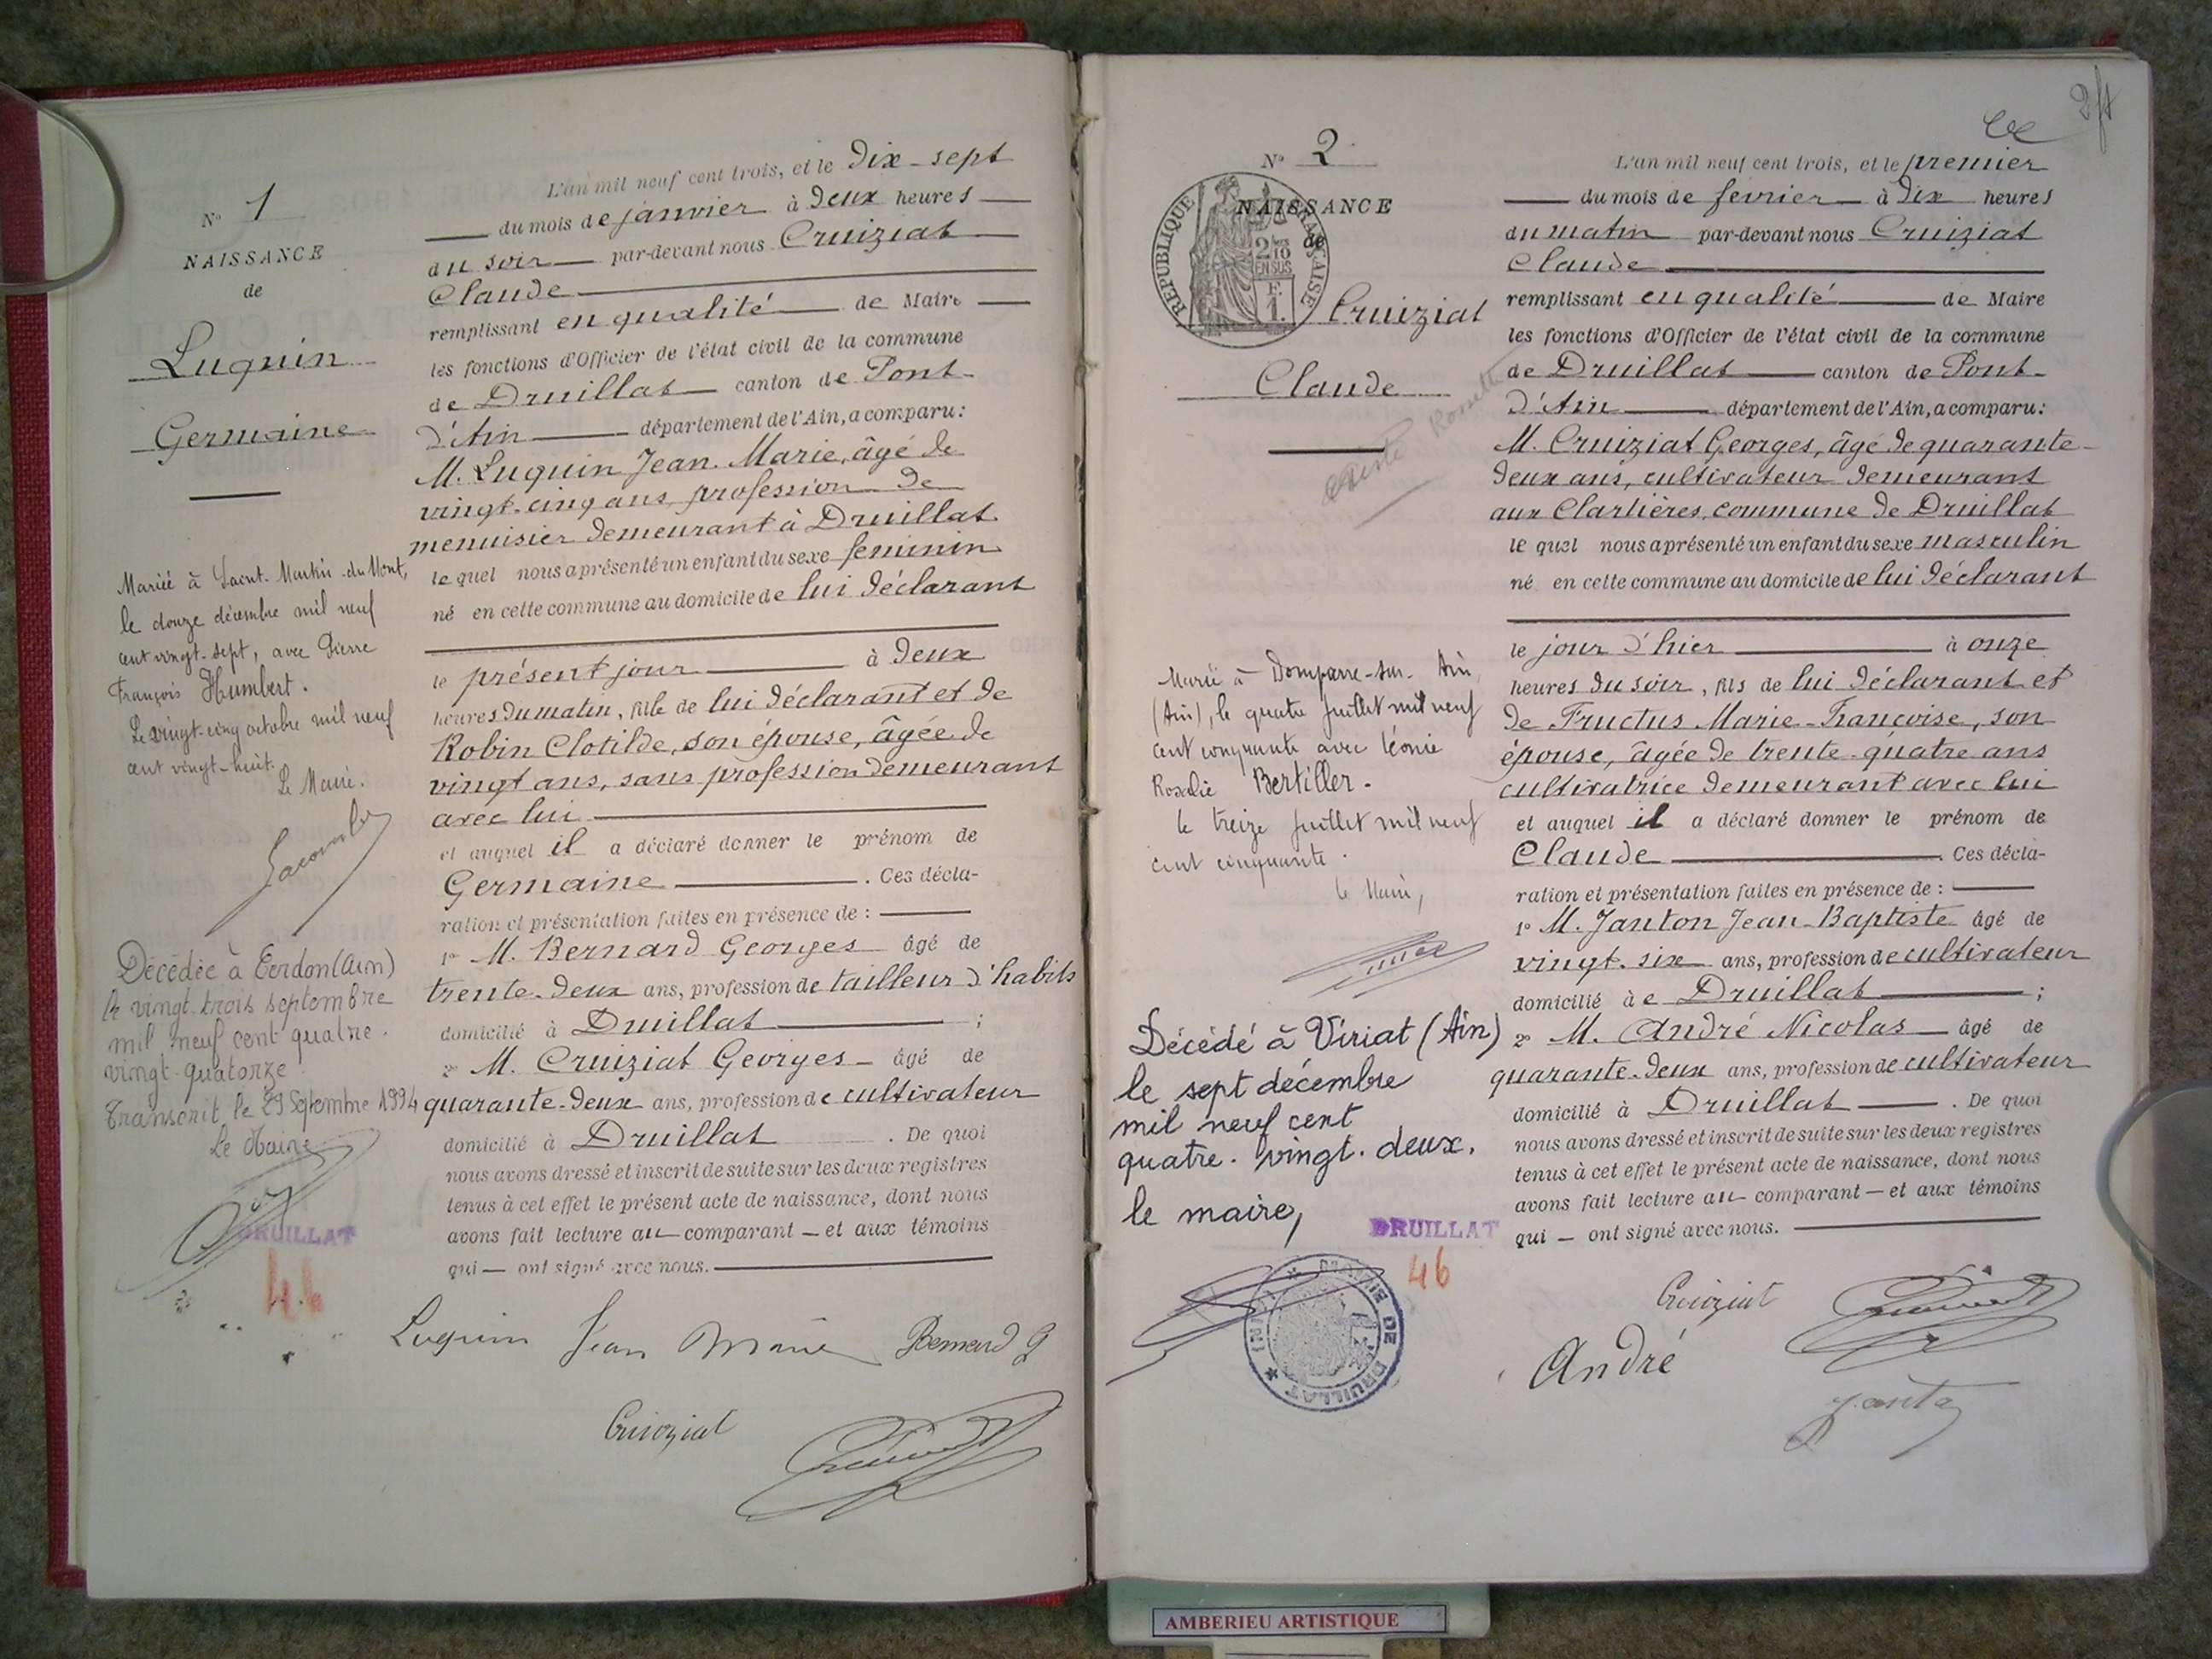 N° 1
NAISSANCE
de
Luquin
Germaine
Mariée à Saint-Martin-du-Mont,
le douze décembre mil neuf
cent vingt-sept, avec Pierre
François Humbert.
Le vingt-cinq octobre mil neuf
cent vingt-huit.
Le Maire.
Décédée à Cerdon (Ain)
le vingt trois septembre
mil neuf cent quatre.
vingt quatorze
Transcrit le 29 Septembre 1994
Le Maire
DRUILLAT
46
L'an mil neuf cent trois, et le dix-sept
du mois de janvier à deux heures
du soir par-devant nous Cruiziat
Claude
remplissant en qualité de Maire
les fonctions d'Officier de l'état civil de la commune
de Druillat canton de Pont-
d'Ain département de l'Ain, a comparu:
M. Luquin Jean Marie, âgé de
vingt-cinq ans, profession de
menuisier demeurant à Druillat
le quel nous a présenté un enfant du sexe feminin
né en cette commune au domicile de lui déclarant
le présent jour à deux
heures du matin, fille de lui déclarant et de
Robin Clotilde, son épouse, âgée de
vingt ans, sans profession demeurant
avec lui
et auquel il a déclaré donner le prénom de
Germaine . Ces décla-
ration et présentation faites en présence de :
1° M. Bernard Georges âgé de
trente-deux ans, profession de tailleur d'habits
domicilié à Druillat ;
2° M. Cruiziat Georges âgé de
quarante-deux ans, profession de cultivateur
domicilié à Druillat . De quoi
nous avons dressé et inscrit de suite sur les deux registres
tenus à cet effet le présent acte de naissance, dont nous
avons fait lecture au comparant — et aux témoins
qui — ont signé avec nous.
Luquin Jean Marie Bernard G
Cruiziat
N° 2
NAISSANCE
de
RÉPUBLIQUE FRANÇAISE
2/10
EN SUS
F.
1.
Cruiziat
Claude
Marié à Dompierre-sur-Ain
(Ain), le quatre juillet mil neuf
cent cinquante avec Léonie
Rosalie Bertiller.
le treize juillet mil neuf
cent cinquante.
le Maire,
Décédé à Viriat (Ain)
le sept décembre
mil neuf cent
quatre-vingt-deux.
le maire,
DRUILLAT
46
MAIRIE DE DRUILLAT
L'an mil neuf cent trois, et le premier
du mois de fevrier à dix heures
du matin par-devant nous Cruiziat
Claude
remplissant en qualité de Maire
les fonctions d'Officier de l'état civil de la commune
de Druillat canton de Pont-
d'Ain département de l'Ain, a comparu:
M. Cruiziat Georges, âgé de quarante-
deux ans, cultivateur demeurant
aux Clartières, commune de Druillat
le quel nous a présenté un enfant du sexe masculin
né en cette commune au domicile de lui déclarant
le jour d'hier à onze
heures du soir, fils de lui déclarant et
de Fructus Marie-Françoise, son
épouse, âgée de trente-quatre ans
cultivatrice demeurant avec lui
et auquel il a déclaré donner le prénom de
Claude . Ces décla-
ration et présentation faites en présence de :
1° M. Janton Jean-Baptiste âgé de
vingt-six ans, profession de cultivateur
domicilié à e Druillat ;
2° M. André Nicolas âgé de
quarante-deux ans, profession de cultivateur
domicilié à Druillat . De quoi
nous avons dressé et inscrit de suite sur les deux registres
tenus à cet effet le présent acte de naissance, dont nous
avons fait lecture au comparant — et aux témoins
qui — ont signé avec nous.
Cruiziat
André
AMBERIEU ARTISTIQUE